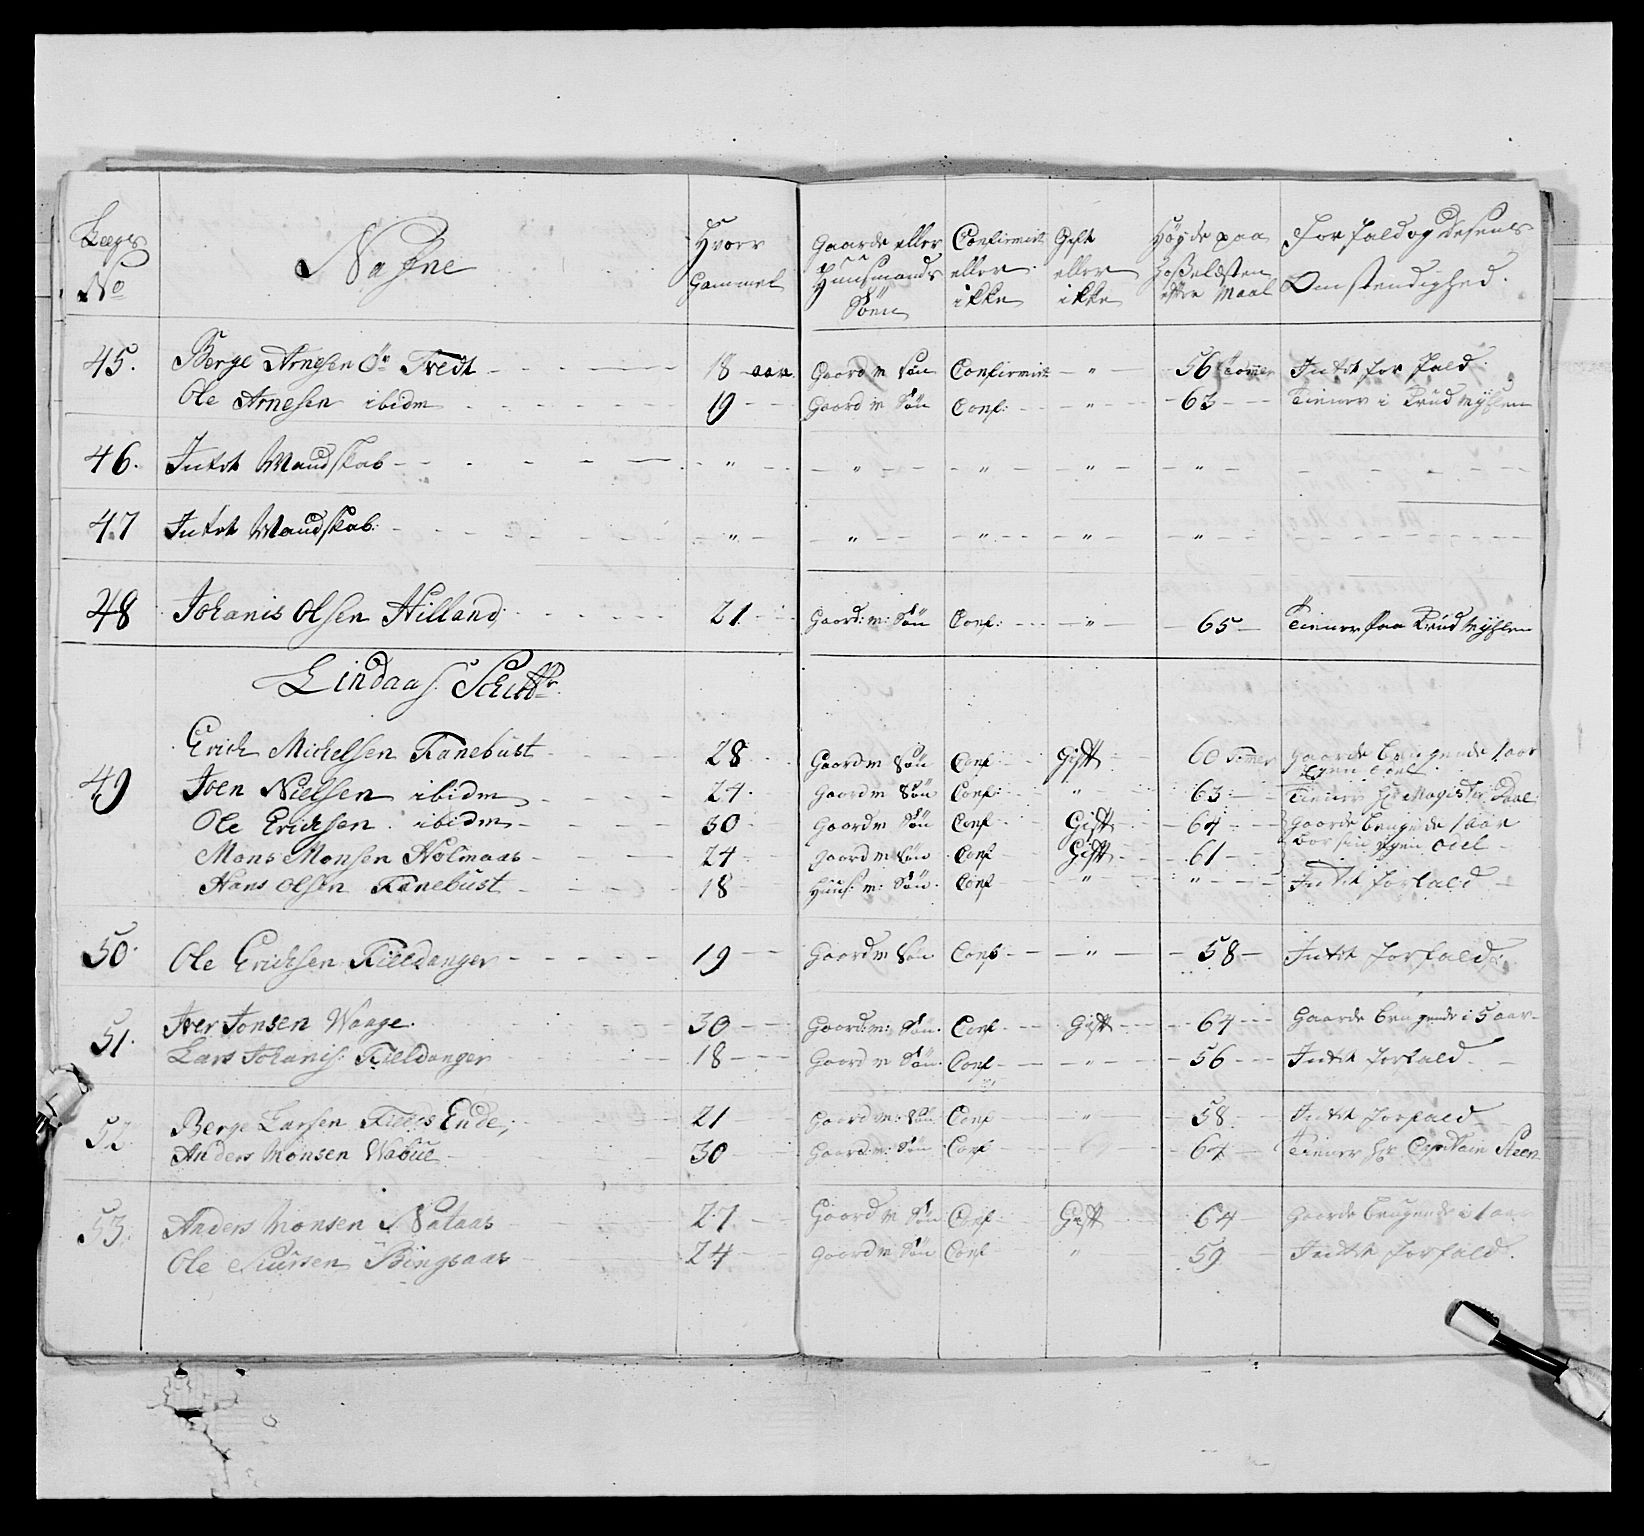 Lægs No | Nafne | Hvorr Gammel | Gaarde eller Huusmands Sönn | Confirmirt eller ikke | Gift eller ikke | Höyde paa Hoßelæsten efter Maal | Forfald og Desens Omstendighed.
45. | Berge Arnesen Ör Tvedt | 18 aar | Gaard m Sön | Confirmirt | " | 56 Tomer | Intet forfald
Ole Arnesen ibidm | 19 | Gaard m Sön | Conf: | " | 63 | Tiener i
46. | Intet Mandskab | " | " | " | " | "
47 | Intet Mandskab | " | " | " | " | "
48 | Johanis Olsen Hilland | 21 | Gaard: m: Sön | Conf: | " | 65 | Tiener paa
Lindaas Schibbr.
49 | Erich Michelsen Fanebust | 28 | Gaard m Sön | Conf: | Gift | 60 Tomer | Gaarde brugende 1 aar Egen odel
Iven Nielsen ibidm | 24 | Gaard m Sön | Conf: | " | 63 | Tiener Hr Magister Daae
Ole Erichsen ibidm | 30 | Gaard m Sön | Conf | Gift | 64 | Gaarde brugende 1 aar
Mons Monsen Holmaas | 24 | Gaard m Sön | Conf | Gift | 61 | bor sin egen odel
Hans Olsen Fanebust | 18 | Huus: m: Sön | Conf | " | " | Intet forfald
50. | Ole Erichsen Fielldanger | 19 | Gaard m Sön | Conf | " | 58 | Intet forfald
51. | Iver Jonsen Waage | 30 | Gaard: m: Sön | Conf | Gift | 64 | Gaarde brugende i 5 aar
Lars Johanis: Fielldanger | 18 | Gaard m Sön | Conf | " | 56 | Intet forfald
52 | Berge Larsen Ende | 21 | Gaard m: Sön | Conf | " | 58 | Intet forfald
Anders Monsen Wabue | 30 | Gaard: m: Sön | Conf | 64 | Tiener Hr Capitain Steen
53. | Anders Monsen Nataas | 27 | Gaard m Sön | Conf: | Gift | 64 | Gaarde brugende i 1 aar
Ole Bingsaas | 24 | Gaard m Sön | Conf | " | 59 | Intet forfald.